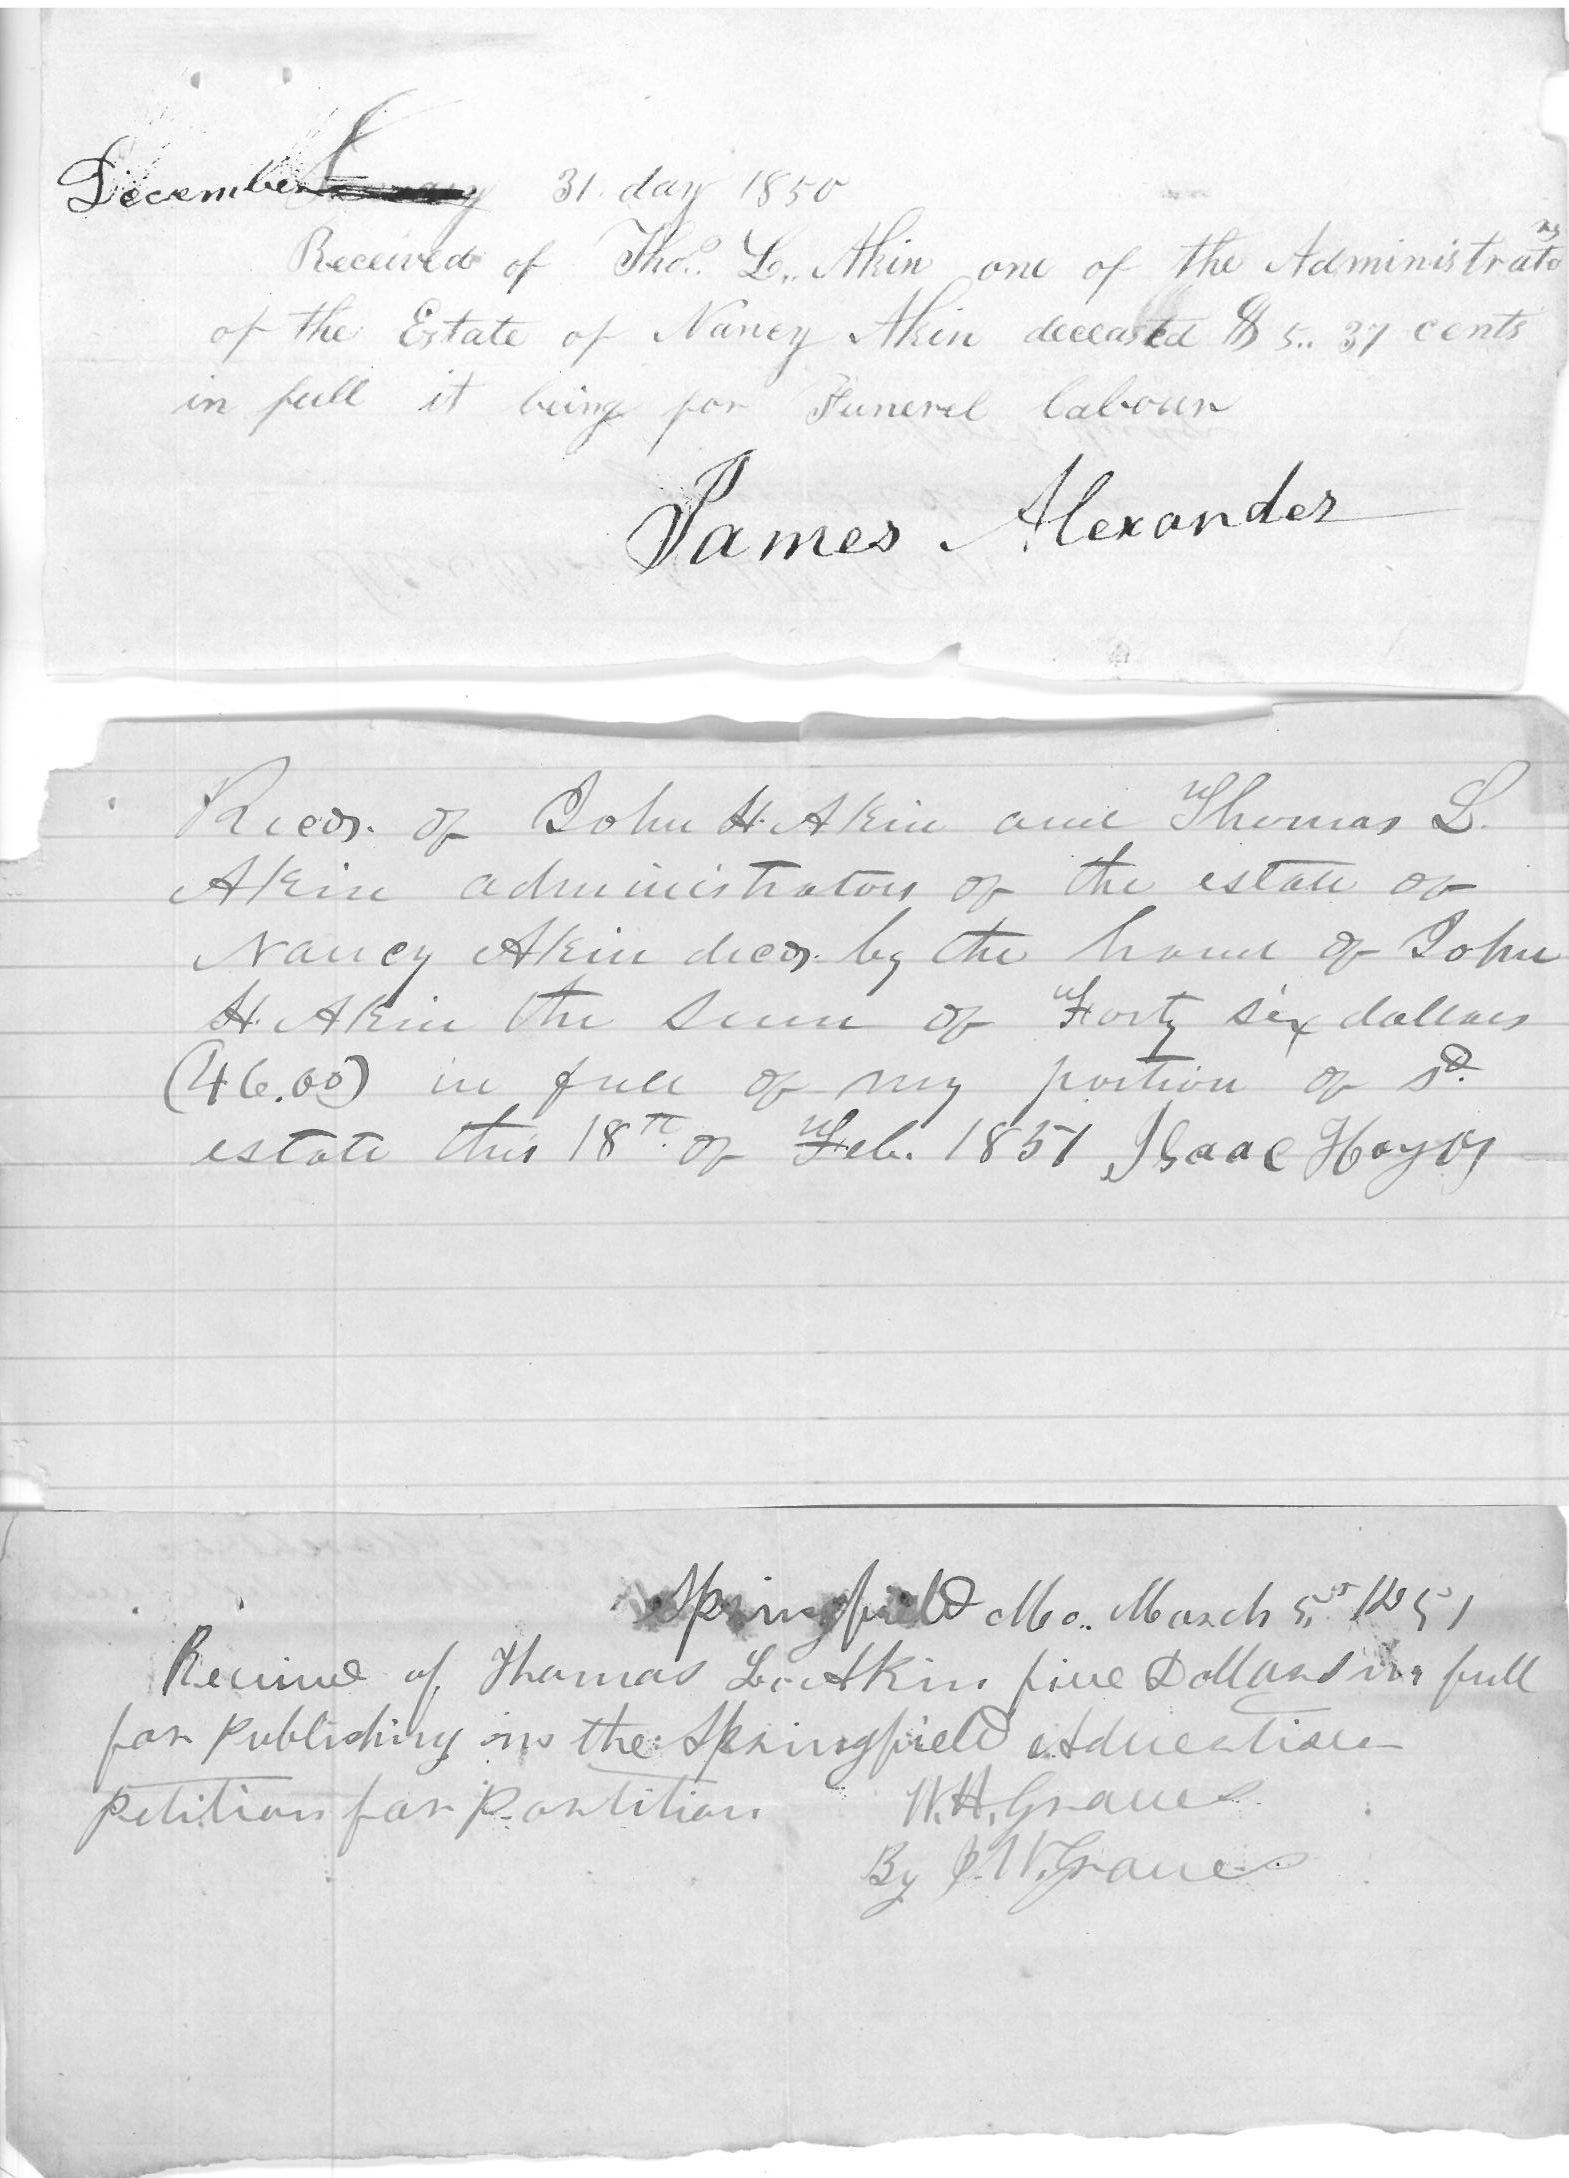 December 31 day 1850
Received of Thos. L. Akin one of the Administrators
of the Estate of Nancy Akin deceasted $5..37 cents
in full it being for Funerel labour
James Alexander
Recd. of John H. Akin and Thomas L.
Akin administrators of the estate of
Nancy Akin decd. by the hand of John
H. Akin the sum of Forty six dollars
(46.00) in full of my portion of sd.
estate this 18th of Feb. 1851 Isaac Hoy
Springfield Mo.. March 5 1851
Recived of Thomas L. Akin five Dollars in full
for Publishing in the Springfield Advertiser
Petition for Partition W.H. Graves
By J.W. Graves